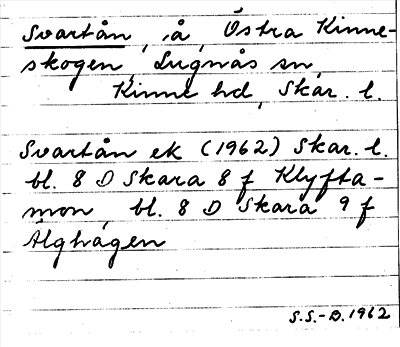 Svartån, å, Östra Kinne-
skogen, Lugnås sn,
Kinne hd, Skar. l.
Svartån ek (1962) Skar. l.
bl. 8 D Skara 8 f Klyfta-
mon, bl. 8 D Skara 9 f
Älghägen
S.S.-B. 1962